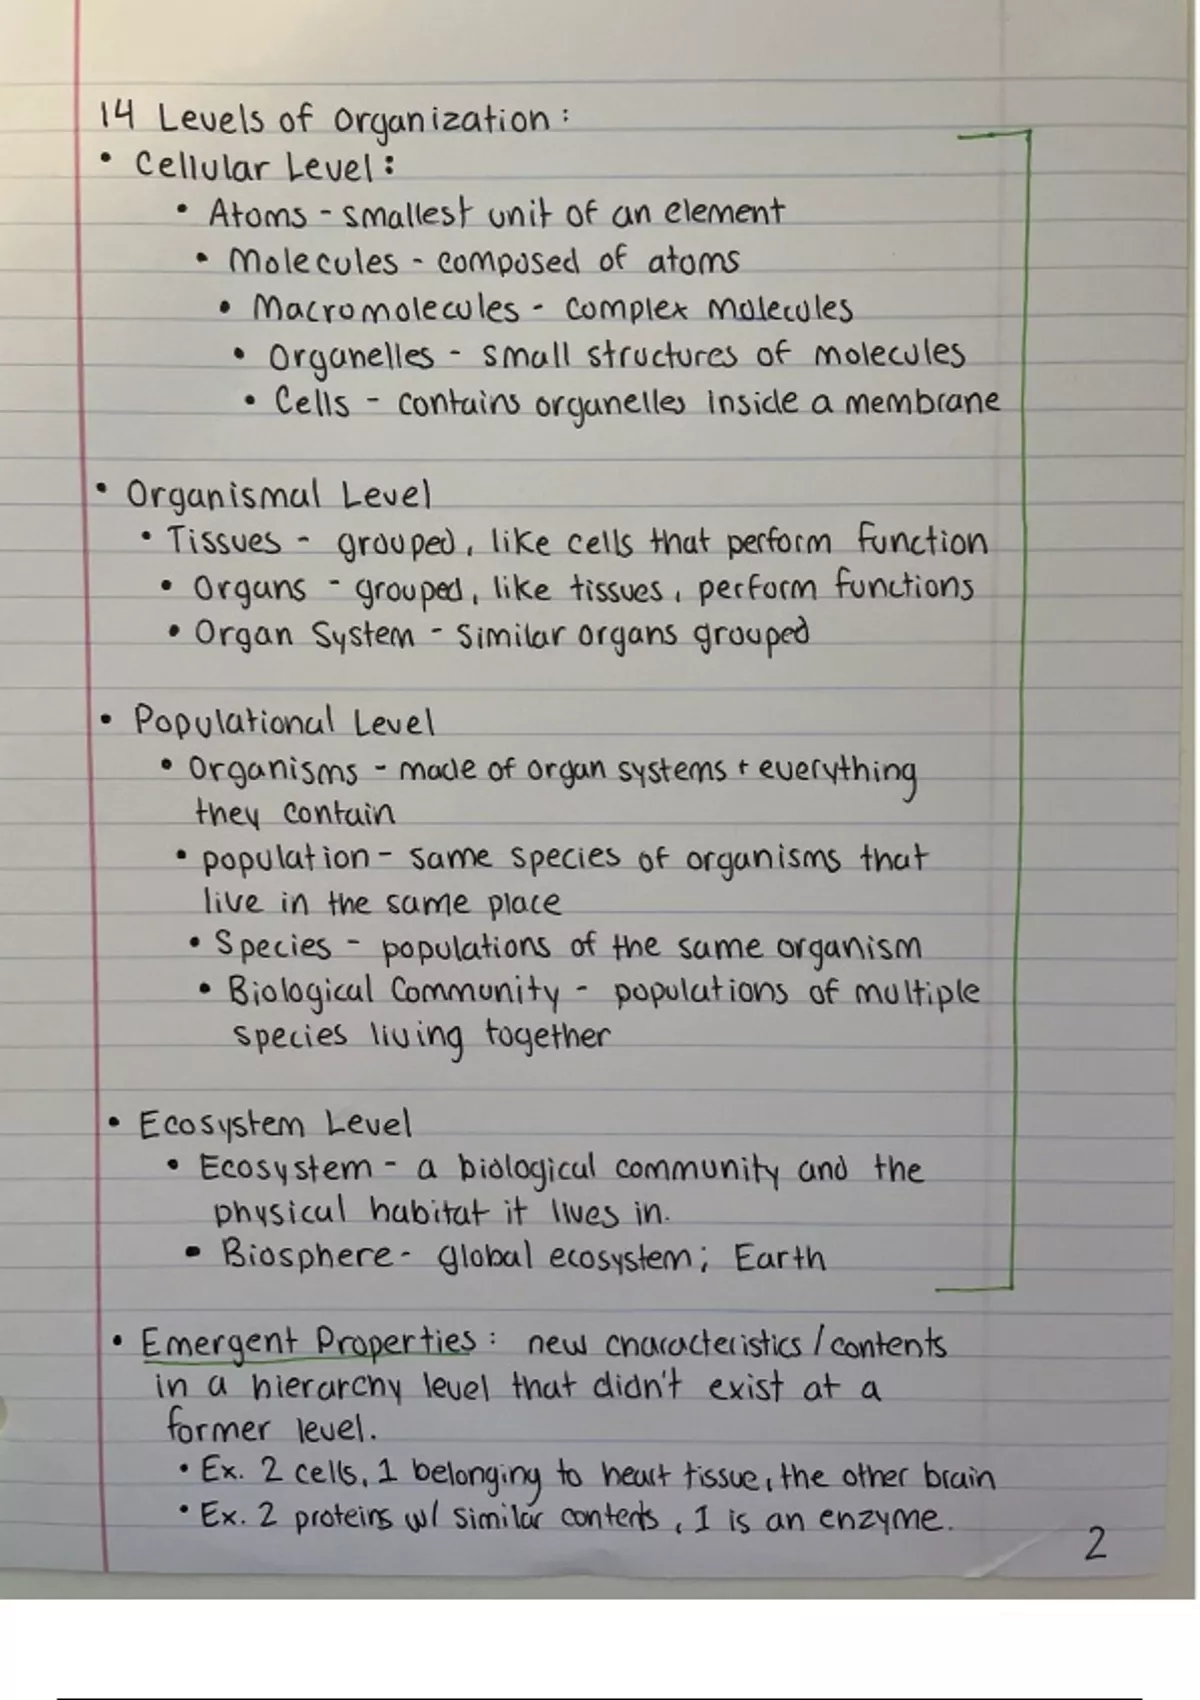 14 Levels of Organization:
• Cellular Level:
• Atoms - smallest unit of an element
• Molecules - composed of atoms
• Macromolecules - complex molecules
• Organelles - small structures of molecules
• Cells - contains organelles inside a membrane
• Organismal Level
• Tissues - grouped, like cells that perform function
• Organs - grouped, like tissues, perform functions
• Organ System - similar organs grouped
• Populational Level
• Organisms - made of organ systems + everything
they contain
• population - same species of organisms that
live in the same place
• Species - populations of the same organism
• Biological Community - populations of multiple
species living together
• Ecosystem Level
• Ecosystem - a biological community and the
physical habitat it lives in.
• Biosphere - global ecosystem; Earth
• Emergent Properties: new characteristics/contents
in a hierarchy level that didn't exist at a
former level.
• Ex. 2 cells, 1 belonging to heart tissue, the other brain
• Ex. 2 proteins w/ similar contents, 1 is an enzyme.
2